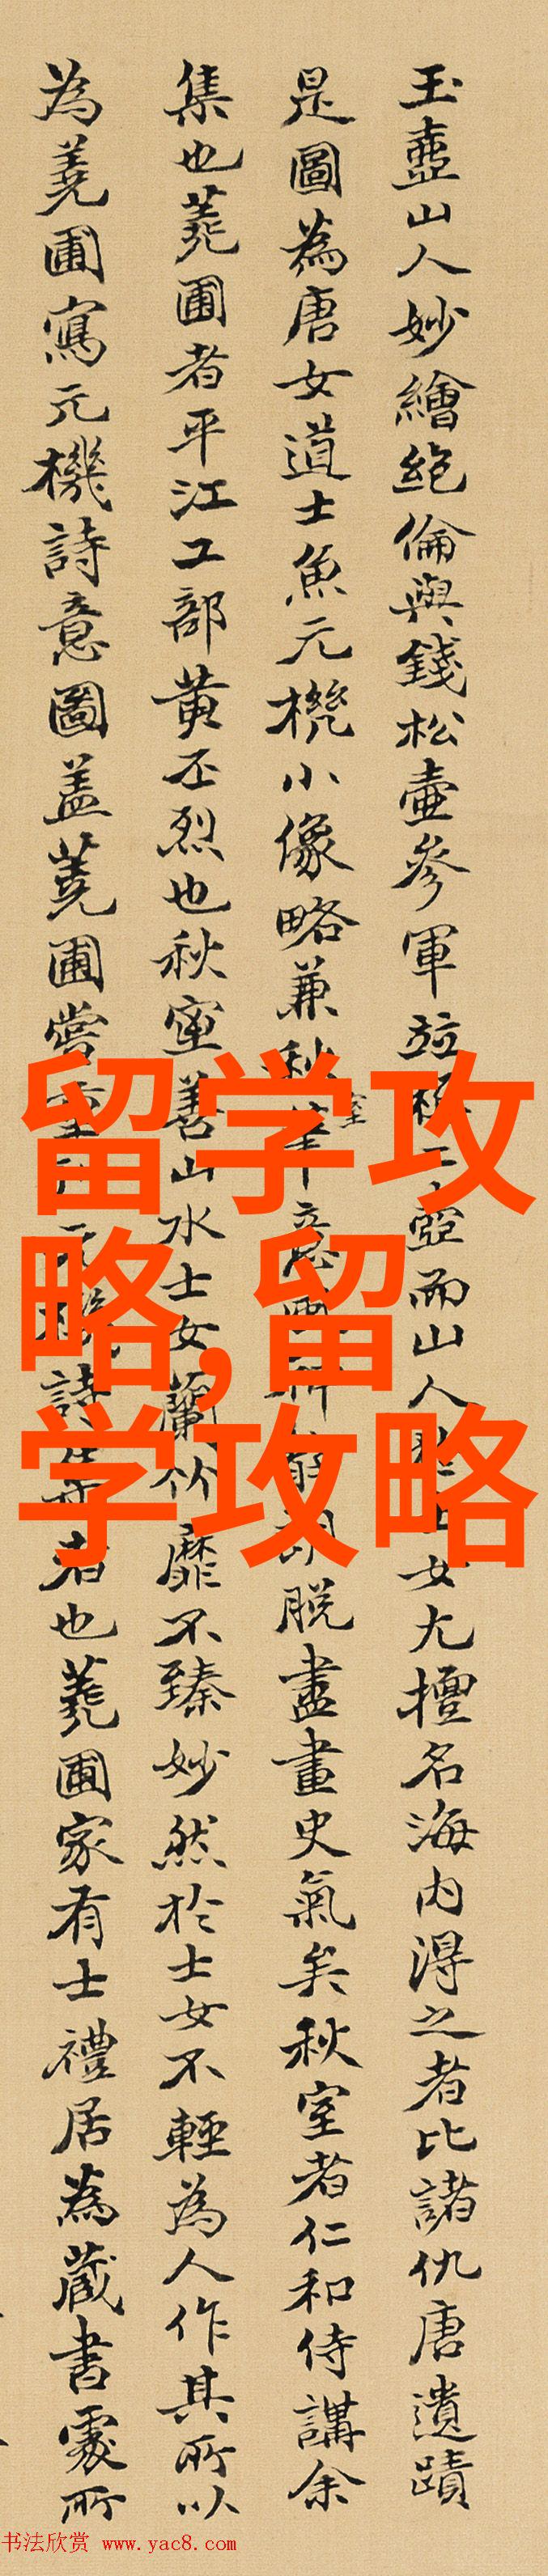 玉壺山人妙繪絶倫與錢松壺參軍竝稱二壺而山人於士女尤擅名海内得之者比諸仇唐遺蹟
是圖為唐女道士魚元機小像略兼秋室意脱盡畫史氣矣秋室者仁和侍講余
集也蕘圃者平江工部黄丕烈也秋室善山水士女蘭竹靡不臻妙然於士女不輕為人作其所以
為蕘圃寫元機詩意圖盖蕘圃嘗元機詩集者也蕘圃家有士禮居為藏書處所
留学攻
略,留
学攻略
书法欣赏 www.yac8.com